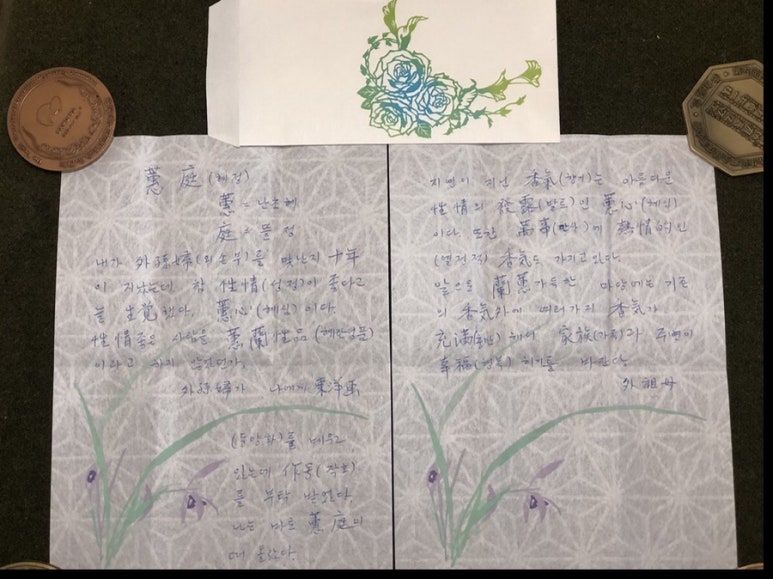 蕙 庭 (혜정)
蕙 = 난초혜
庭 = 뜰 정
내가 外孫婦(외손부)를 맞난지 十年
이 지났는데 참 性情(성정)이 좋다고
늘 生覺했다. 蕙心(혜심)이다.
性情좋은 사람을 蕙蘭性品(혜란성품)
이라고 하지 않았던가.
外孫婦가 나에게 東洋画
(동양화)를 배우고
있는데 作号(작호)
를 부탁 받았다.
나는 바로 蕙庭이
떠 올랐다.
지연이 지닌 香氣(향기)는 아름다운
性情의 發露(발로)인 蕙心(혜심)
이다. 또한 萬事(만사)에 熱情的인
(열정적) 香氣도 가지고 있다.
앞으로 蘭蕙 가득한 마당에는 기존
의 香氣外에 여러가지 香氣가
充滿(충만)해서 家族(가족)과 주변이
幸福(행복)하기를 바란다.
外祖母